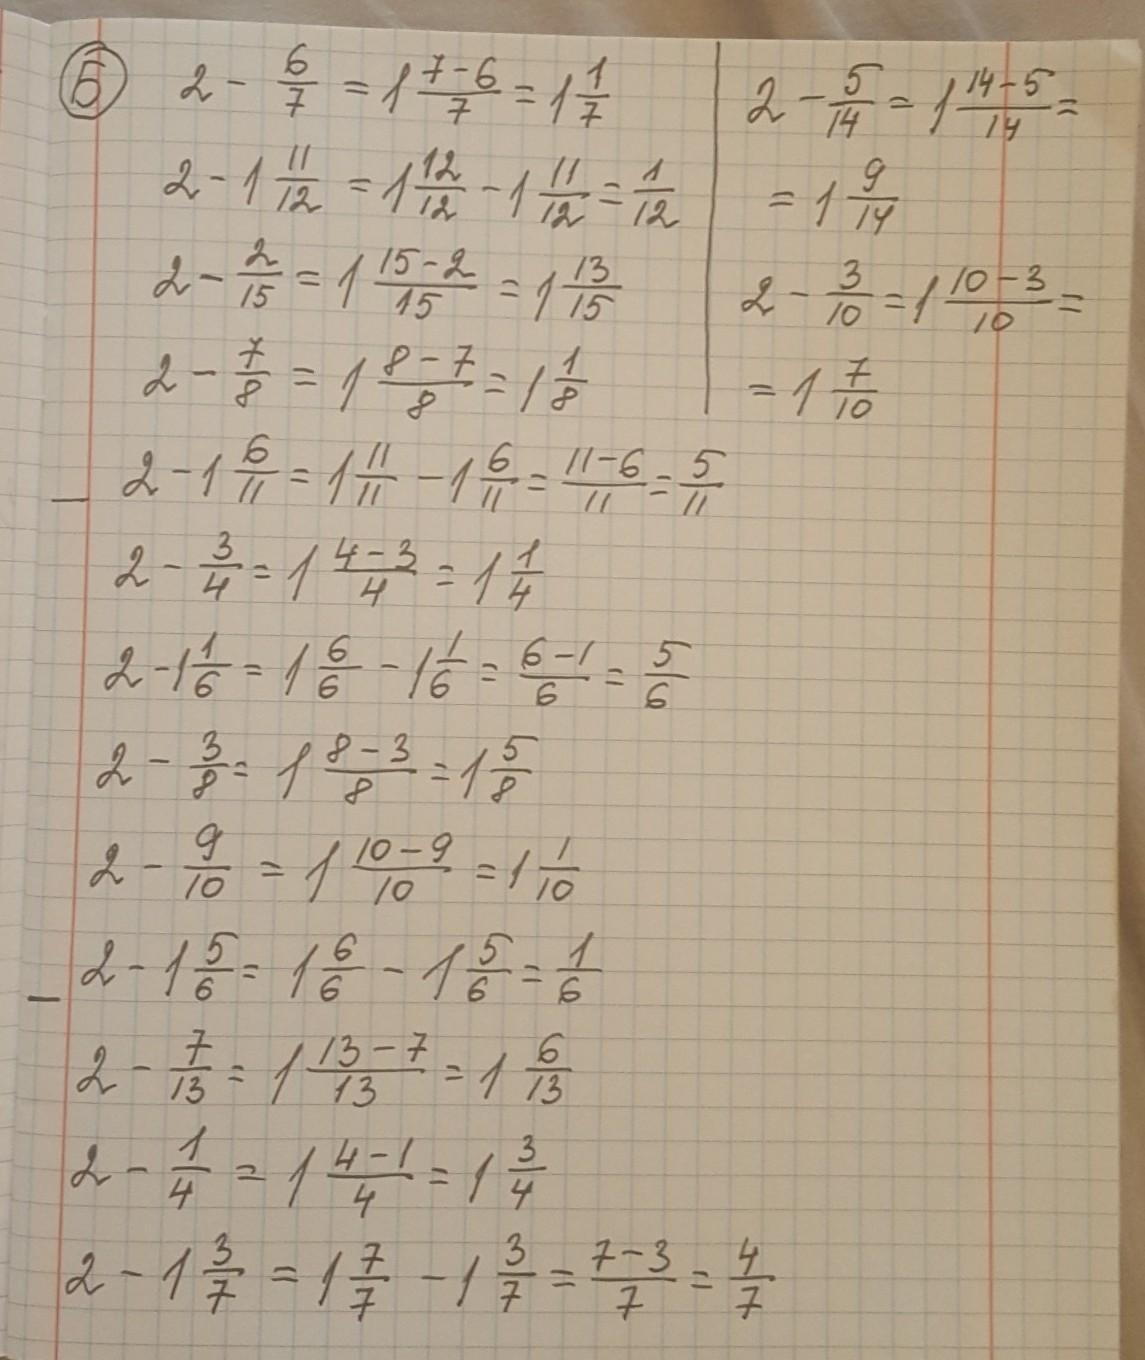 Б
2 - 6/7 = 1 (7-6)/7 = 1 1/7
2 - 1 11/12 = 1 12/12 - 1 11/12 = 1/12
2 - 2/15 = 1 (15-2)/15 = 1 13/15
2 - 7/8 = 1 (8-7)/8 = 1 1/8
2 - 5/14 = 1 (14-5)/14 =
= 1 9/14
2 - 3/10 = 1 (10-3)/10 =
= 1 7/10
2 - 1 6/11 = 1 11/11 - 1 6/11 = (11-6)/11 = 5/11
2 - 3/4 = 1 (4-3)/4 = 1 1/4
2 - 1 1/6 = 1 6/6 - 1 1/6 = (6-1)/6 = 5/6
2 - 3/8 = 1 (8-3)/8 = 1 5/8
2 - 9/10 = 1 (10-9)/10 = 1 1/10
2 - 1 5/6 = 1 6/6 - 1 5/6 = 1/6
2 - 7/13 = 1 (13-7)/13 = 1 6/13
2 - 1/4 = 1 (4-1)/4 = 1 3/4
2 - 1 3/7 = 1 7/7 - 1 3/7 = (7-3)/7 = 4/7